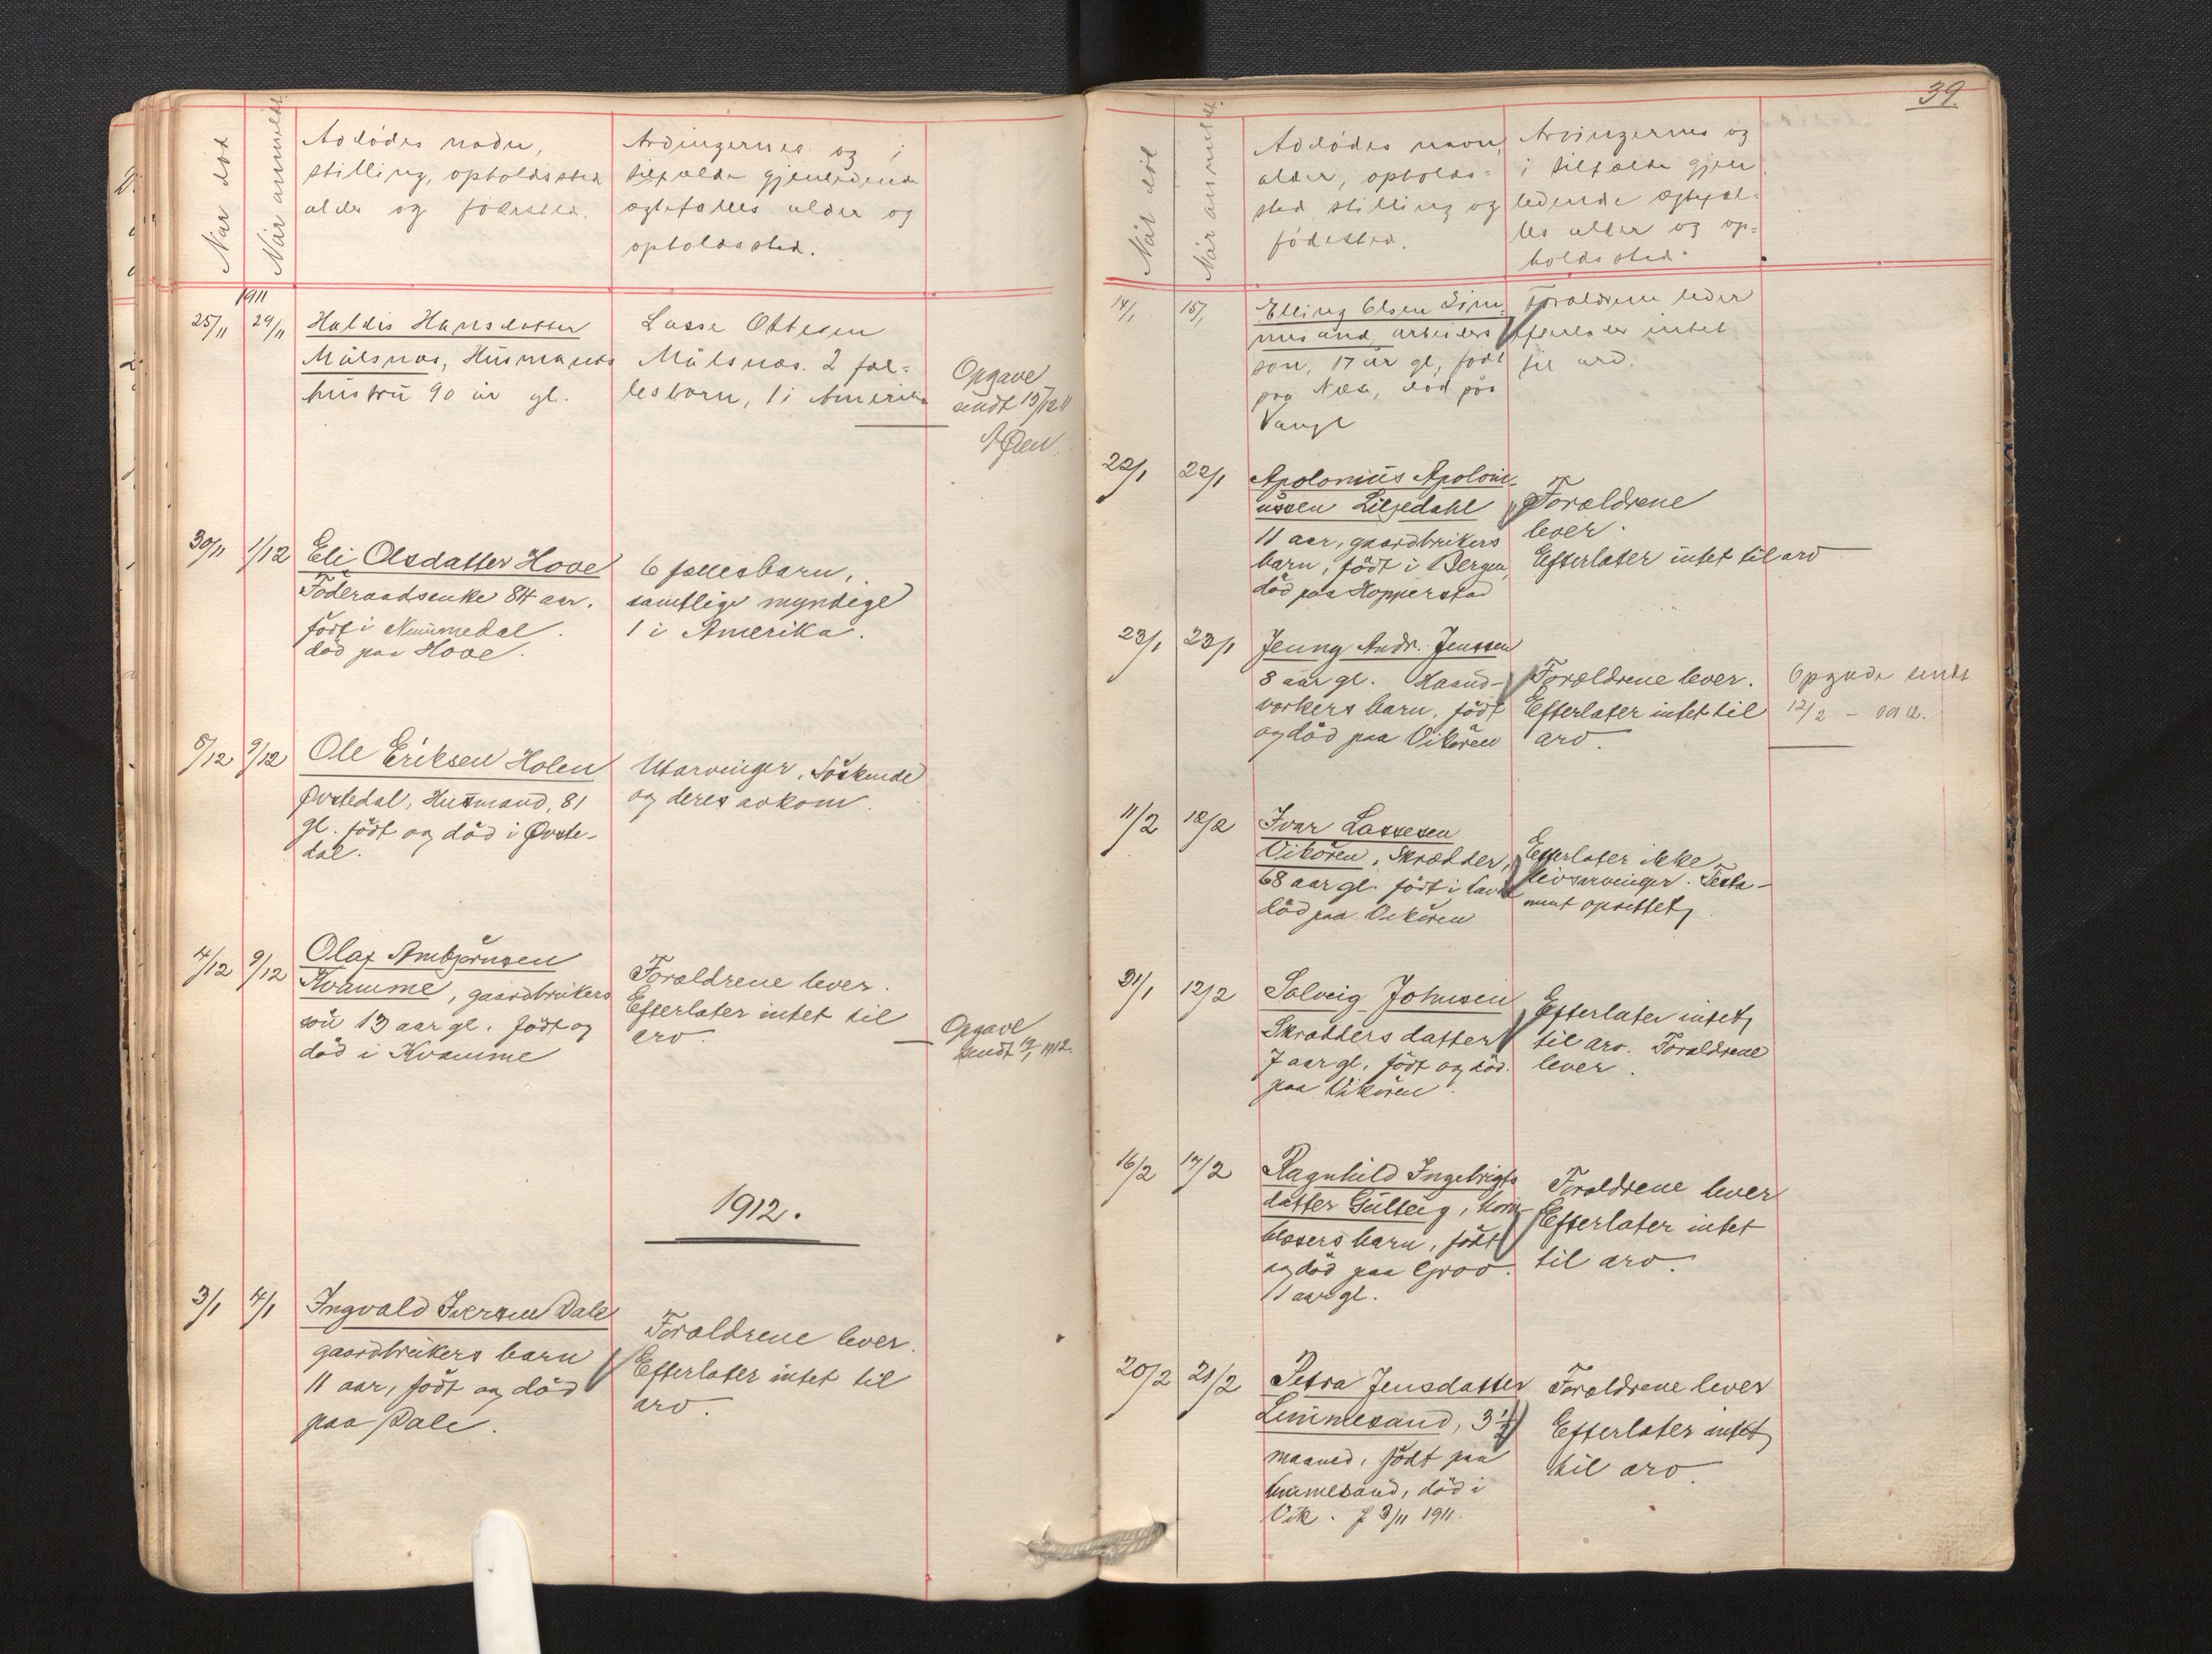 Når död
Når anmeldt
Avdödes navn,
stilling, opholdssted
alder og födested.
Arvingernes og i
tilfælde gjenlevende
ægtefælles alder og
opholdssted.
1911
25/11
29/11
Haldis Hansdatter
Målsnæs, Husmands
hustru 90 år gl.
Lasse Ottesen
Målsnæs. 2 fæl-
lesbarn, 1 i Amerika
Opgave
sendt 15/12 11
30/11
1/12
Eli Olsdatter Hove
Föderaadsenke 84 aar.
född i Nummedal.
död paa Hove.
6 fællesbarn,
samtlige myndige
1 i Amerika.
8/12
9/12
Ole Eriksen Holen
Øvstedal, Husmand, 81
gl. födt og död i Øvste-
dal.
Utarvinger, Söskende
og deres avkom.
4/12
9/12
Olaf Ambjørnsen
Kvamme, gaardbrukers
sön 13 aar gl. födt og
död i Kvamme
Forældrene lever.
Efterlater intet til
arv.
Opgave
sendt 12/1 1912.
1912.
3/1
4/1
Ingvald Iversen Dale
gaardbrukers barn
11 aar, födt og död
paa Dale.
Forældrene lever.
Efterlater intet til
arv.
39.
Når död
Når anmeldt.
Avdödes navn,
alder, opholds=
sted stilling og
födested.
Arvingernes og
i tilfælde gjen
levende ægtefæl=
les alder og op=
holdssted.
14/1
15/1
Elling Olsen Lim-
mesand arbeiders
son, 17 år gl, født
paa Næse, död på
Vangs
Forældrene lever
efterlater intet
til arv.
22/1
22/1
Apolonius Apoloni-
ussen Liljedahl
11 aar, gaardbrukers
barn, födt i Bergen,
död paa Hopperstad
Forældrene
lever.
Efterlater intet til arv
23/1
23/1
Jenny Andr. Jenssen
8 aar gl. Haand-
værkers barn, födt
og död paa Vikören
Forældrene lever.
Efterlater intet til
arv.
Opgave sendt
12/2 - 1912.
11/2
12/2
Ivar Lassesen
Vikören, Skrædder,
68 aar gl. födt i
död paa Vikören
Efterlater ikke
livsarvinger. Testa-
ment oprettet,
31/1
12/2
Solveig Johnsen
Skrædders datter
7 aar gl, födt og död.
paa Vikören.
Efterlater intet,
til arv. Forældrene
lever.
16/2
17/2
Ragnhild Ingebrigts
datter Gulleig, horn-
blæsers barn, födt
og död paa Grov.
11 aar gl.
Forældrene lever
Efterlater intet
til arv.
20/2
21/2
Petra Jensdatter
Limmesand, 3 1/2
maaned, födt paa
Limmesand, död i
Vik. f 3/11 1911.
Forældrene lever
Efterlater intet,
til arv.